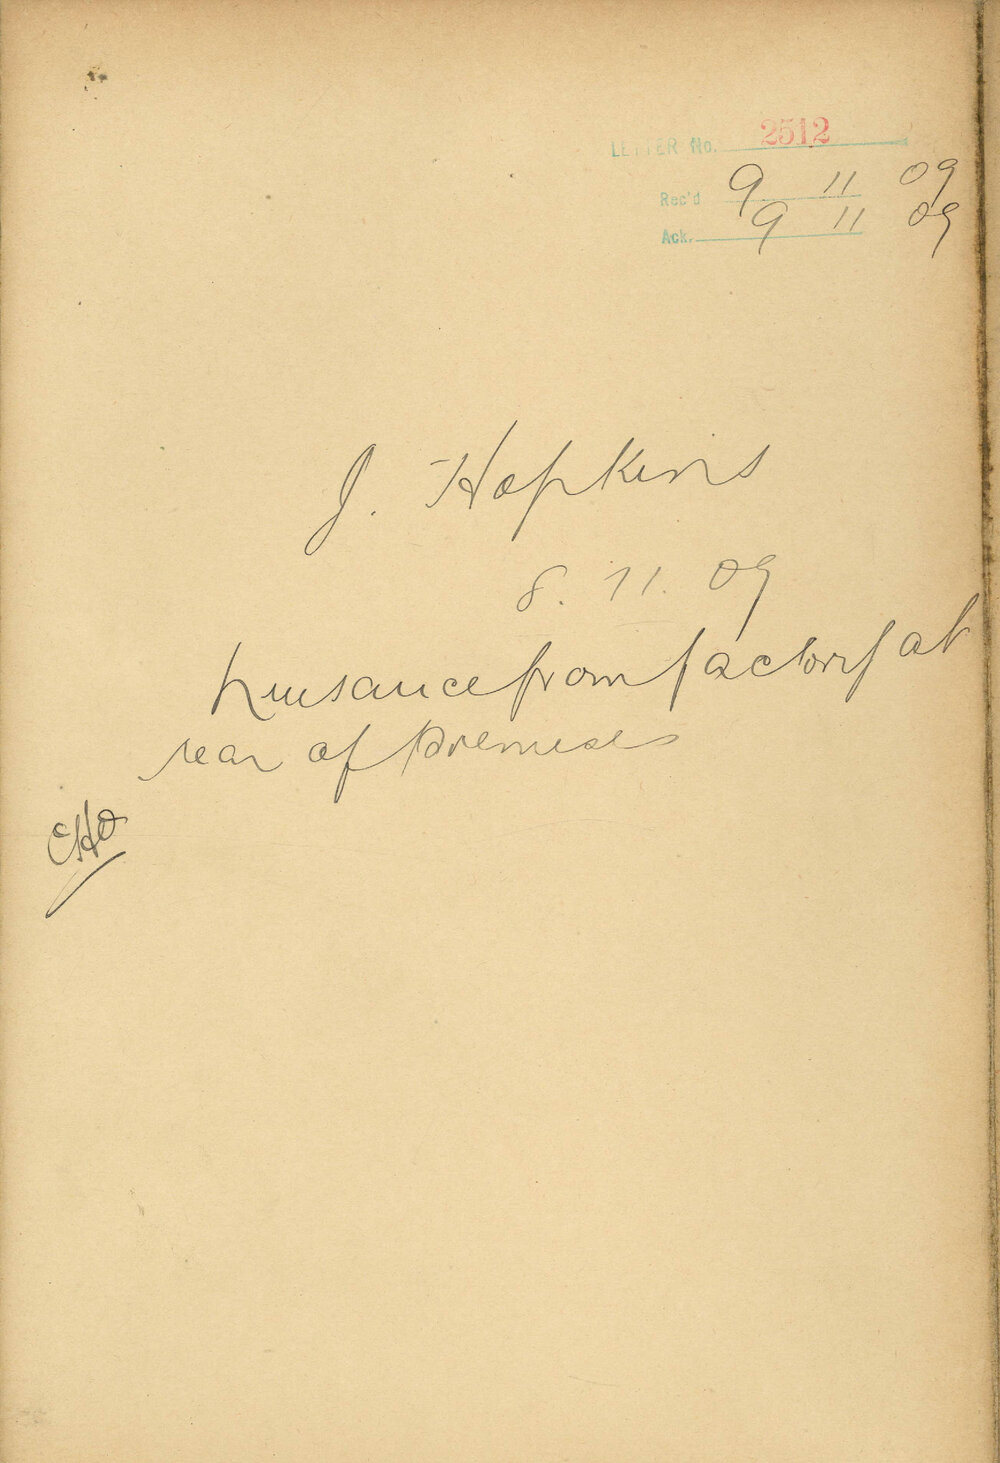 LETTER No. 2512
Rec'd 9 11 09
Ack. 9 11 09
J. Hopkins
8. 11. 09
Nuisance from factory at
rear of Premises
CHO